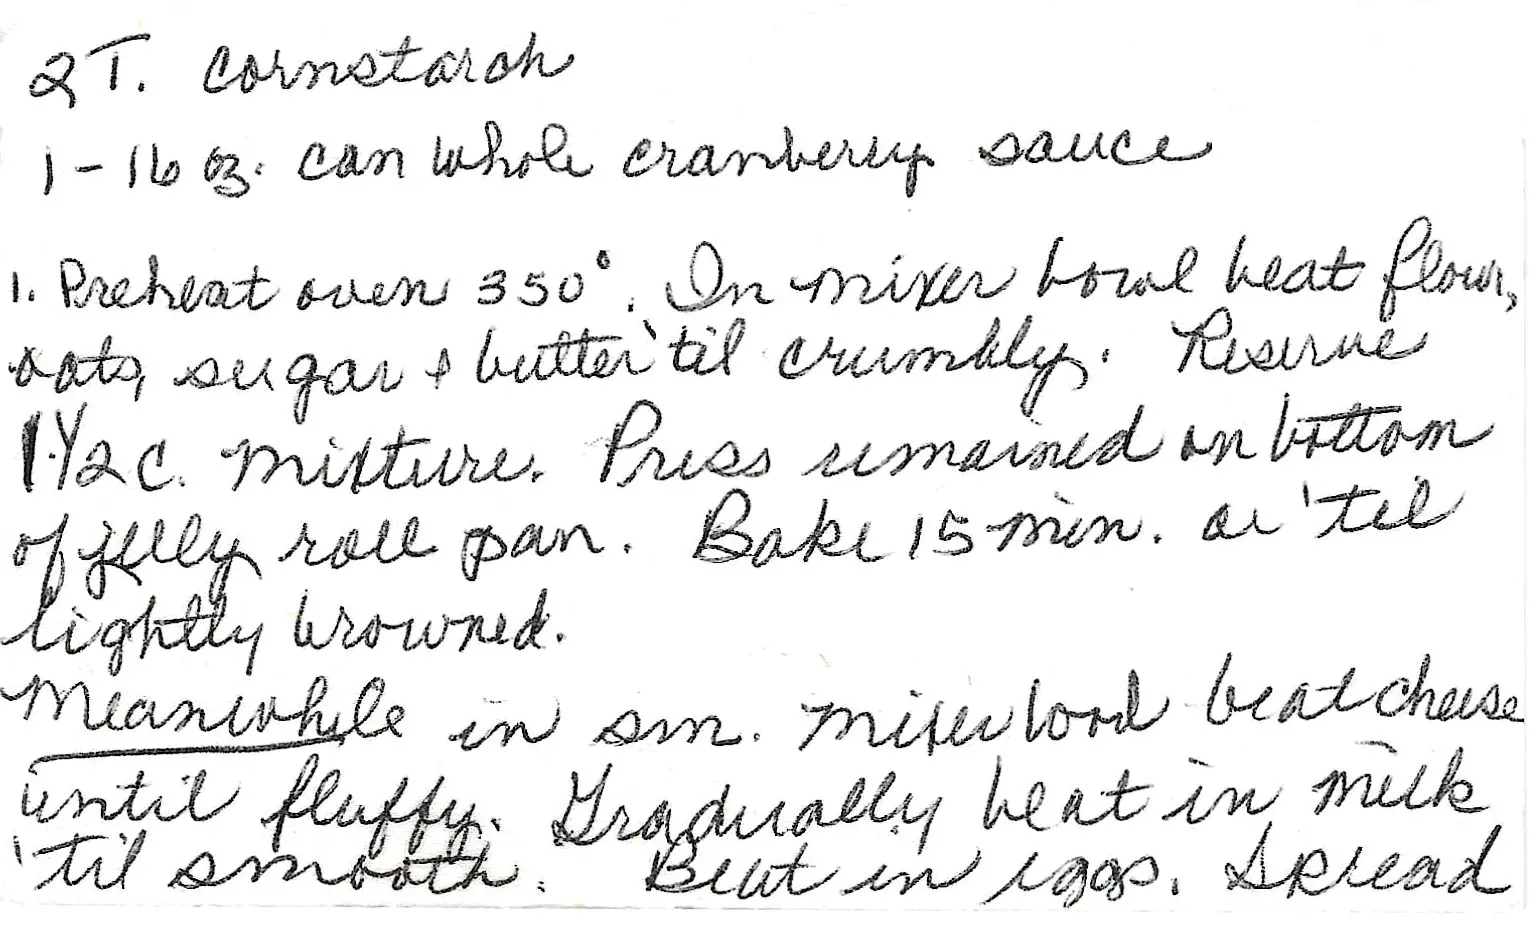 2 T. cornstarch
1 - 16 oz. can whole cranberry sauce
1. Preheat oven 350°. In mixer bowl beat flour,
oats, sugar & butter 'til crumbly. Reserve
1 1/2 c. mixture. Press remained on bottom
of jelly roll pan. Bake 15 min. or 'til
lightly browned.
Meanwhile in sm. mixer bowl beat cheese
until fluffy. Gradually beat in milk
'til smooth. Beat in eggs. Spread